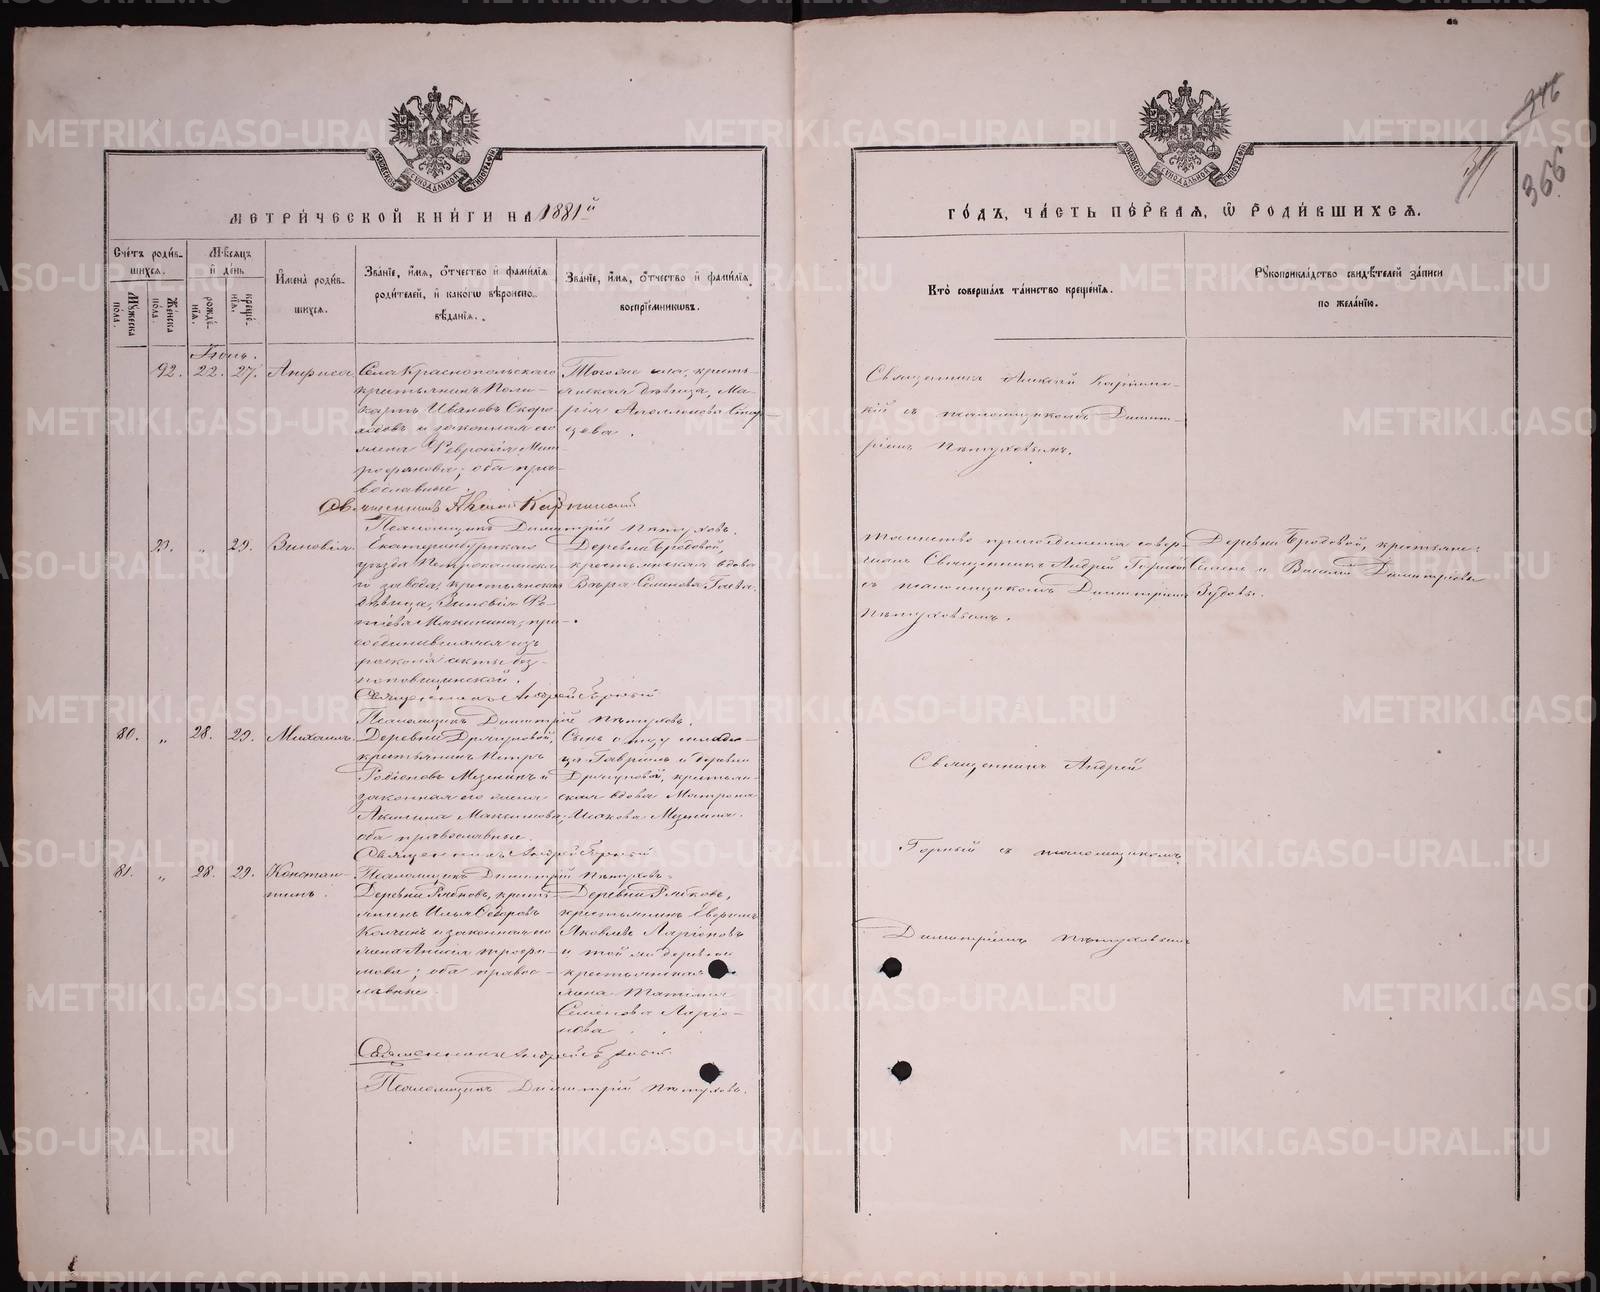 МЕТРИ́ЧЕСКОЙ КНИ́ГИ НА 1881й
ГО́ДЪ, ЧА́СТЬ ПЕ́РВАЯ, Ѿ РОДИ́ВШИХСЯ.
Сче́тъ роди́вшихся.
Му́жеска по́ла.
Же́нска по́ла.
Мѣ́сяцъ и҆ де́нь
рожде́нїя.
креще́нїя.
И҆мена̀ роди́вшихся.
Зва́нїе, и҆́мя, ѻ҆́тчество и҆ фами́лїя родителей, и҆ како́гѡ вѣроисповѣ́данїя.
Зва́нїе, и҆́мя, ѻ҆́тчество и҆ фами́лїя воспрїе́мникѡвъ.
Кто̀ соверша́лъ та́инство креще́нїя.
Рукоприкла́дство свидѣ́телей за́писи по жела́нїю.
366
Іюнь.
92. 22. 27. Анфиса
Села Краснопольскаго
крестьянинъ Поли-
карпъ Ивановъ Скоро-
ходовъ и законная его
жена Феврония Мит-
рофанова; оба пра-
вославные.
Тогоже села, кресть-
янская дѣвица, Ма-
рія Аполлонова Стар-
цева.
Священник Алексій Карпин-
скій с псаломщикомъ Димит-
ріемъ Пѣтуховымъ.
Священникъ Алексій Карпинскій
Псаломщикъ Димитрій Пѣтуховъ.
93. „ 29. Зиновія.
Екатеринбургскаго
уѣзда Петрокаменска-
го завода, крестьянская
дѣвица, Зиновія Фо-
тіева Мякинина, при-
соединившаяся изъ
раскола секты без-
поповщинской.
Деревни Бродовой,
крестьянская вдова
Вѣра Семенова Гаева.
Таинство присоединения совер-
шалъ Священникъ Андрей Горный
с псаломщикомъ Димитріемъ
Пѣтуховымъ.
Деревни Бродовой, крестьяне:
Семенъ и Василій Димитріевы
Зудовы.
Священникъ Андрей Горный
Псаломщикъ Димитрій Пѣтуховъ.
80. „ 28. 29. Михаилъ.
Деревни Дрягуновой,
крестьянинъ Петръ
Родіоновъ Мезенинъ и
законная его жена
Акилина Максимова;
оба православные.
Сынъ отцу младе-
ца Гавріилъ и деревни
Дрягуновой, крестьян-
ская вдова Матрона
Исакова Мезенина.
Священникъ Андрей
Священникъ Андрей Горный
Псаломщикъ Димитрій Пѣтуховъ.
Горный съ псаломщикомъ
81. „ 28. 29. Констан-
тинъ.
Деревни Рябковъ, кресть-
янинъ Илья Сидоровъ
Колчинъ и законная его
жена Анисія Трофи-
мова; оба правос-
лавные.
Деревни Рябковъ,
крестьянинъ Евдокимъ
Яковлевъ Ларіоновъ
и той же деревни
крестьянская
жена Татіана
Семенова Ларіо-
нова
Димитріемъ Пѣтуховымъ
Священникъ Андрей Горный.
Псаломщикъ Димитрій Пѣтуховъ.
METRIKI.GASO-URAL.RU